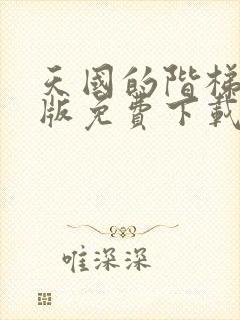 天國的階梯
版免費下載
唯深深